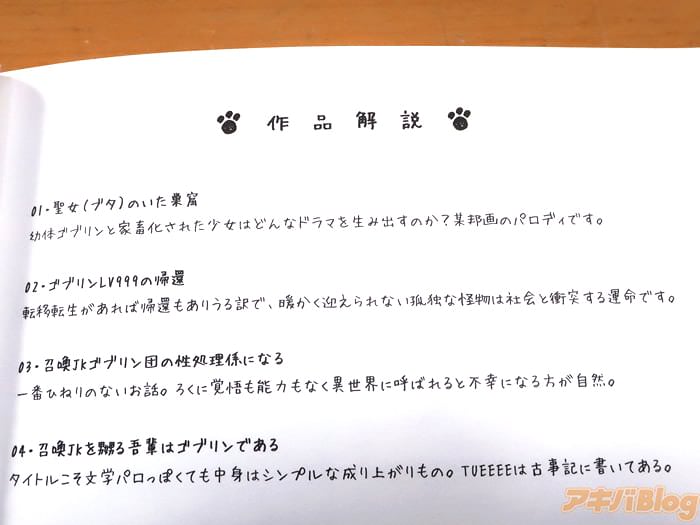 作品解説
01・聖女(ブタ)のいた巣窟
幼体ゴブリンと家畜化された少女はどんなドラマを生み出すのか?某邦画のパロディです。
02・ゴブリンLV999の帰還
転移転生があれば帰還もありうる訳で、暖かく迎えられない孤独な怪物は社会と衝突する運命です。
03・召喚JKゴブリン団の性処理係になる
一番ひねりのないお話。ろくに覚悟も能力もなく異世界に呼ばれると不幸になる方が自然。
04・召喚JKを嬲る吾輩はゴブリンである
タイトルこそ文学パロっぽくても中身はシンプルな成り上がりもの。TUEEEEは古事記に書いてある。
アキバBlog